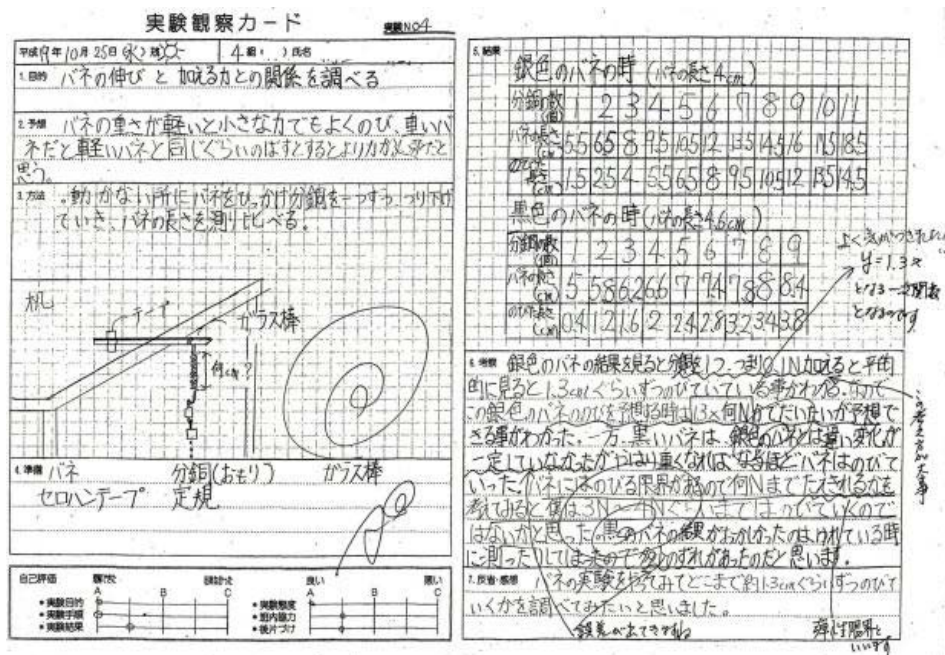 実験観察カード
実験NO4
平成19年10月25日(水)
4組( )氏名
1.目的 バネの伸びと加える力との関係を調べる
2.予想 バネの重さが軽いと小さな力でもよくのび、重いバ
ネだと軽いバネと同じぐらいのばすとするとより力が必要だと
思う。
3.方法 ・動かない所にバネをひっかけ分銅を一つずつつり下げ
ていき、バネの長さを測り比べる。
机
テープ
ガラス棒
何cm?
4.準備 バネ 分銅(おもり) ガラス棒
セロハンテープ 定規
自己評価
A B C
良い 悪い
A B C
・実験目的
・実験手順
・実験結果
・実験態度
・班内協力
・後片づけ
5.結果
銀色のバネの時(バネの長さ4cm)
分銅の数(個) 1 2 3 4 5 6 7 8 9 10 11
バネの長さ(cm) 5.5 6.5 8 9.5 10.5 12 13.5 14.5 16 17.5 18.5
のびた長さ(cm) 1.5 2.5 4 5.5 6.5 8 9.5 10.5 12 13.5 14.5
黒色のバネの時(バネの長さ4.6cm)
分銅の数(個) 1 2 3 4 5 6 7 8 9
バネの長さ(cm) 5 5.8 6.2 6.6 7 7.4 7.8 8 8.4
のびた長さ(cm) 0.4 1.2 1.6 2 2.4 2.8 3.2 3.4 3.8
よく気がつきました
y=1.3x
となる一次関数
となるのです
6.考察 銀色のバネの結果を見ると分銅を1つ、つまり0.1N加えると平均
的に見ると1.3cmぐらいずつのびていっている事がわかる。なので
この銀色のバネののびを予想する時は13×何Nかでだいたいが予想で
きる事がわかった。一方、黒いバネは、銀色のバネとは違い変化が
一定していなかったがやはり重くなれば、なるほどバネはのびて
いった。バネにはのびる限界があるので何Nまでたえきれるかを
考えてみると僕は3N〜4Nぐらいまではのびていくので
はないかと思った。黒のバネの結果がおかしかったのはゆれている時
に測ったりしてしまったので多少のずれがあったのだと思います。
この考え方が大事
7.反省・感想 バネの実験をやってみてどこまで約1.3cmぐらいずつのびて
いくかを調べてみたいと思いました。
誤差が出てきますね
弾性限界と
いいます